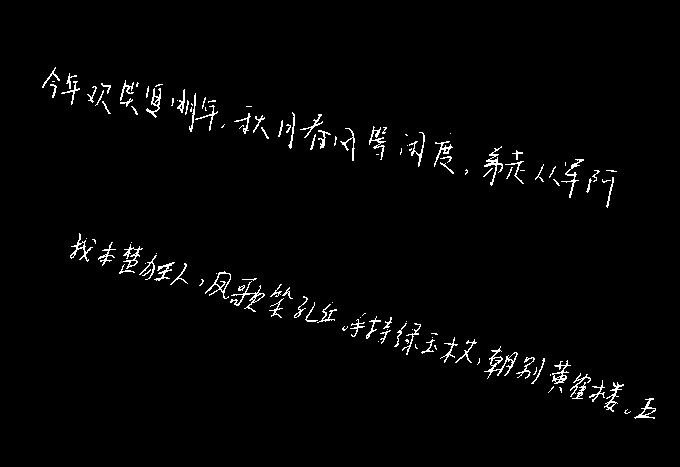 今年欢笑复明年,秋月春风等闲度,弟走从军阿
我本楚狂人,凤歌笑孔丘。手持绿玉杖,朝别黄鹤楼。五